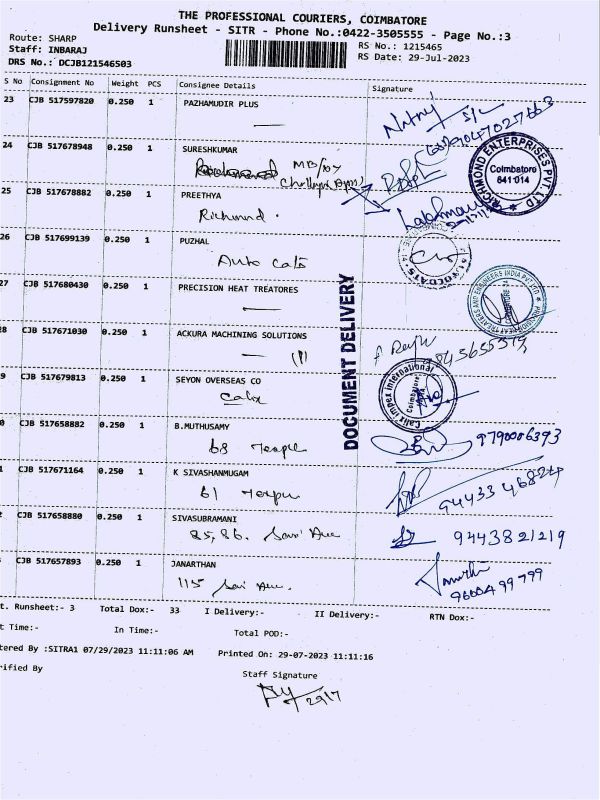 THE PROFESSIONAL COURIERS, COIMBATORE
Delivery Runsheet - SITR - Phone No.:0422-3505555 - Page No.:3
Route: SHARP
Staff: INBARAJ
DRS No.: DCJB121546503
RS No.: 1215465
RS Date: 29-Jul-2023
S No Consignment No Weight PCS Consignee Details Signature
23 CJB 517597820 0.250 1 PAZHAMUDIR PLUS
24 CJB 517678948 0.250 1 SURESHKUMAR
RICHMOND ENTERPRISES PVT. LTD
Coimbatore
641 014
25 CJB 517678882 0.250 1 PREETHYA
Richmond.
26 CJB 517699139 0.250 1 PUZHAL
Auto cats
27 CJB 517680430 0.250 1 PRECISION HEAT TREATORES
28 CJB 517671030 0.250 1 ACKURA MACHINING SOLUTIONS
DOCUMENT DELIVERY
9 CJB 517679813 0.250 1 SEYON OVERSEAS CO
Calix
Calix impex international
Coimbatore
0 CJB 517658882 0.250 1 B.MUTHUSAMY
63 Temple
9790006393
1 CJB 517671164 0.250 1 K SIVASHANMUGAM
61
94433 46824
2 CJB 517658880 0.250 1 SIVASUBRAMANI
85,86. Sai Ave
9443821219
CJB 517657893 0.250 1 JANARTHAN
115 Sai Ave.
96004 99 799
t. Runsheet:- 3 Total Dox:- 33 I Delivery:- II Delivery:- RTN Dox:-
t Time:- In Time:- Total POD:-
tered By :SITRA1 07/29/2023 11:11:06 AM Printed On: 29-07-2023 11:11:16
rified By
Staff Signature
29/7